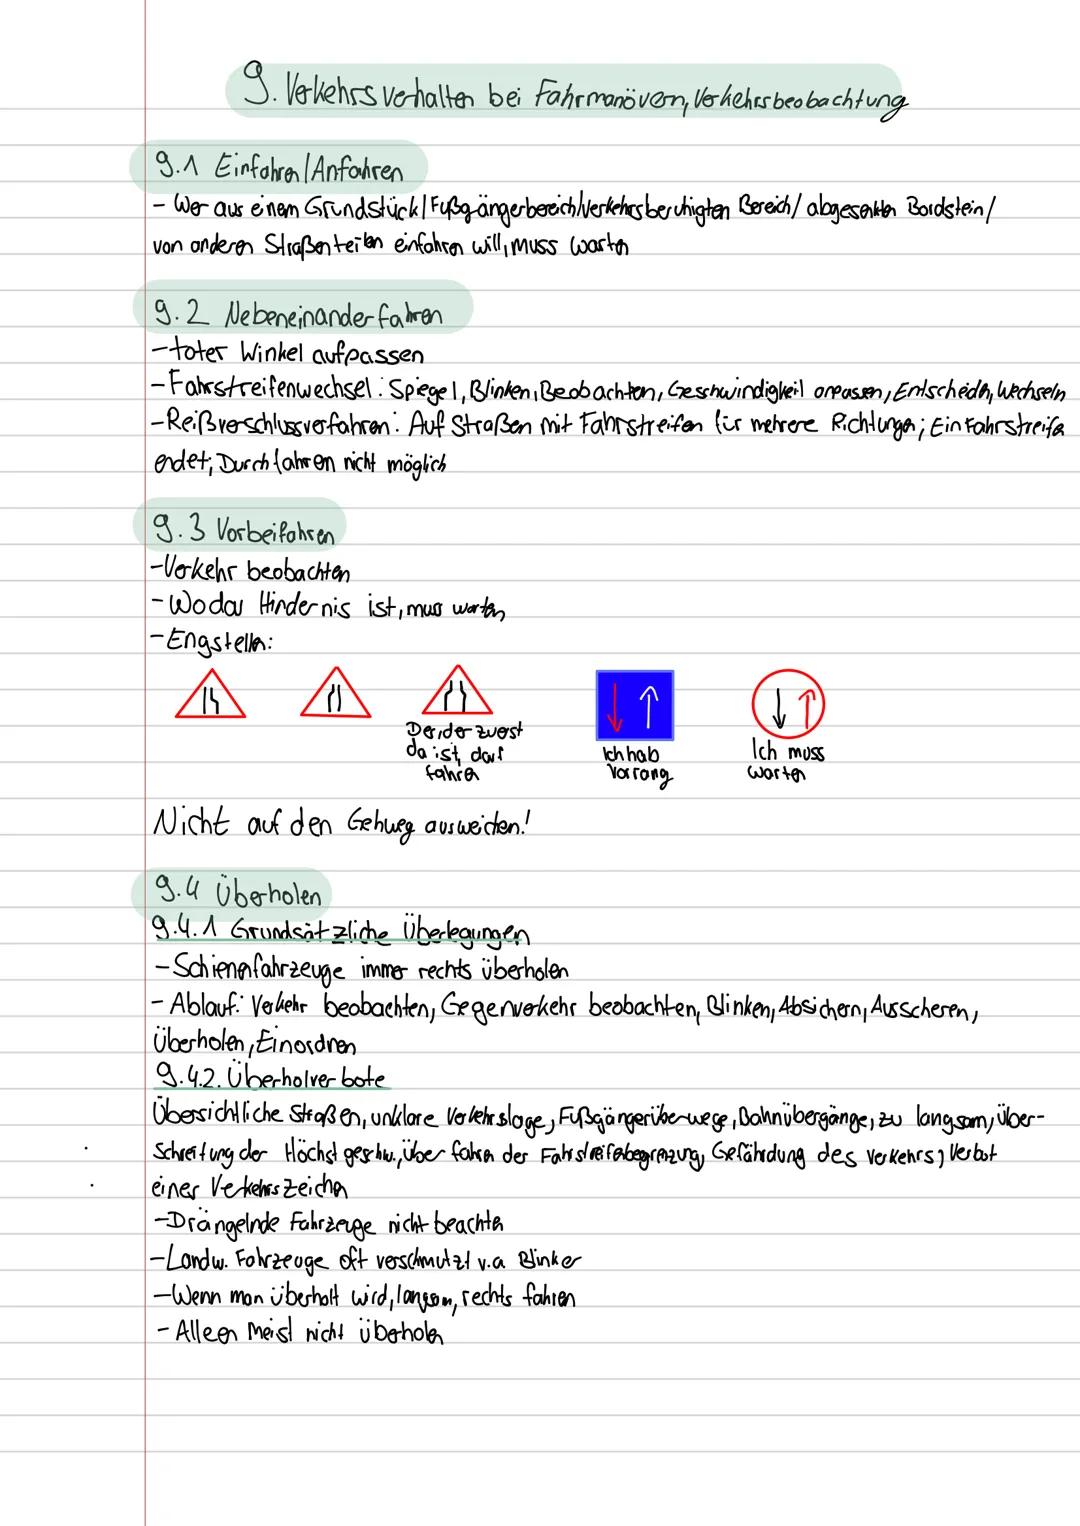 9. Verkehrsverhalten bei Fahrmanövern, Verkehrsbeobachtung
9.1 Einfahren/Anfahren
- Wer aus einem Grundstück/Fußgängerbereich/verkehrsberuhigten Bereich/abgesenkten Bordstein/
von anderen Straßenteilen einfahren will, muss warten
9.2 Nebeneinanderfahren
- toter Winkel aufpassen
- Fahrstreifenwechsel: Spiegel, Blinken, Beobachten, Geschwindigkeit anpassen, Entscheiden, Wechseln
- Reißverschlussverfahren: Auf Straßen mit Fahrstreifen für mehrere Richtungen; Ein Fahrstreifen
endet; Durchfahren nicht möglich
9.3 Vorbeifahren
- Verkehr beobachten
- Wo das Hindernis ist, muss warten
- Engstellen:
Der, der zuerst
da ist, darf
fahren
Ich hab
Vorrang
Ich muss
warten
Nicht auf den Gehweg ausweichen!
9.4 Überholen
9.4.1 Grundsätzliche Überlegungen
- Schienenfahrzeuge immer rechts überholen
- Ablauf: Verkehr beobachten, Gegenverkehr beobachten, Blinken, Absichern, Ausscheren,
Überholen, Einordnen
9.4.2. Überholverbote
Übersichtliche Straßen, unklare Verkehrslage, Fußgängerüberwege, Bahnübergänge, zu langsam, Über-
schreitung der Höchstgeschw., Überfahren der Fahrstreifenbegrenzung, Gefährdung des Verkehrs, Verbot
eines Verkehrszeichen
- Drängelnde Fahrzeuge nicht beachten
- Landw. Fahrzeuge oft verschmutzt v.a Blinker
- Wenn man überholt wird, langsam, rechts fahren
- Alleen meist nicht überholen